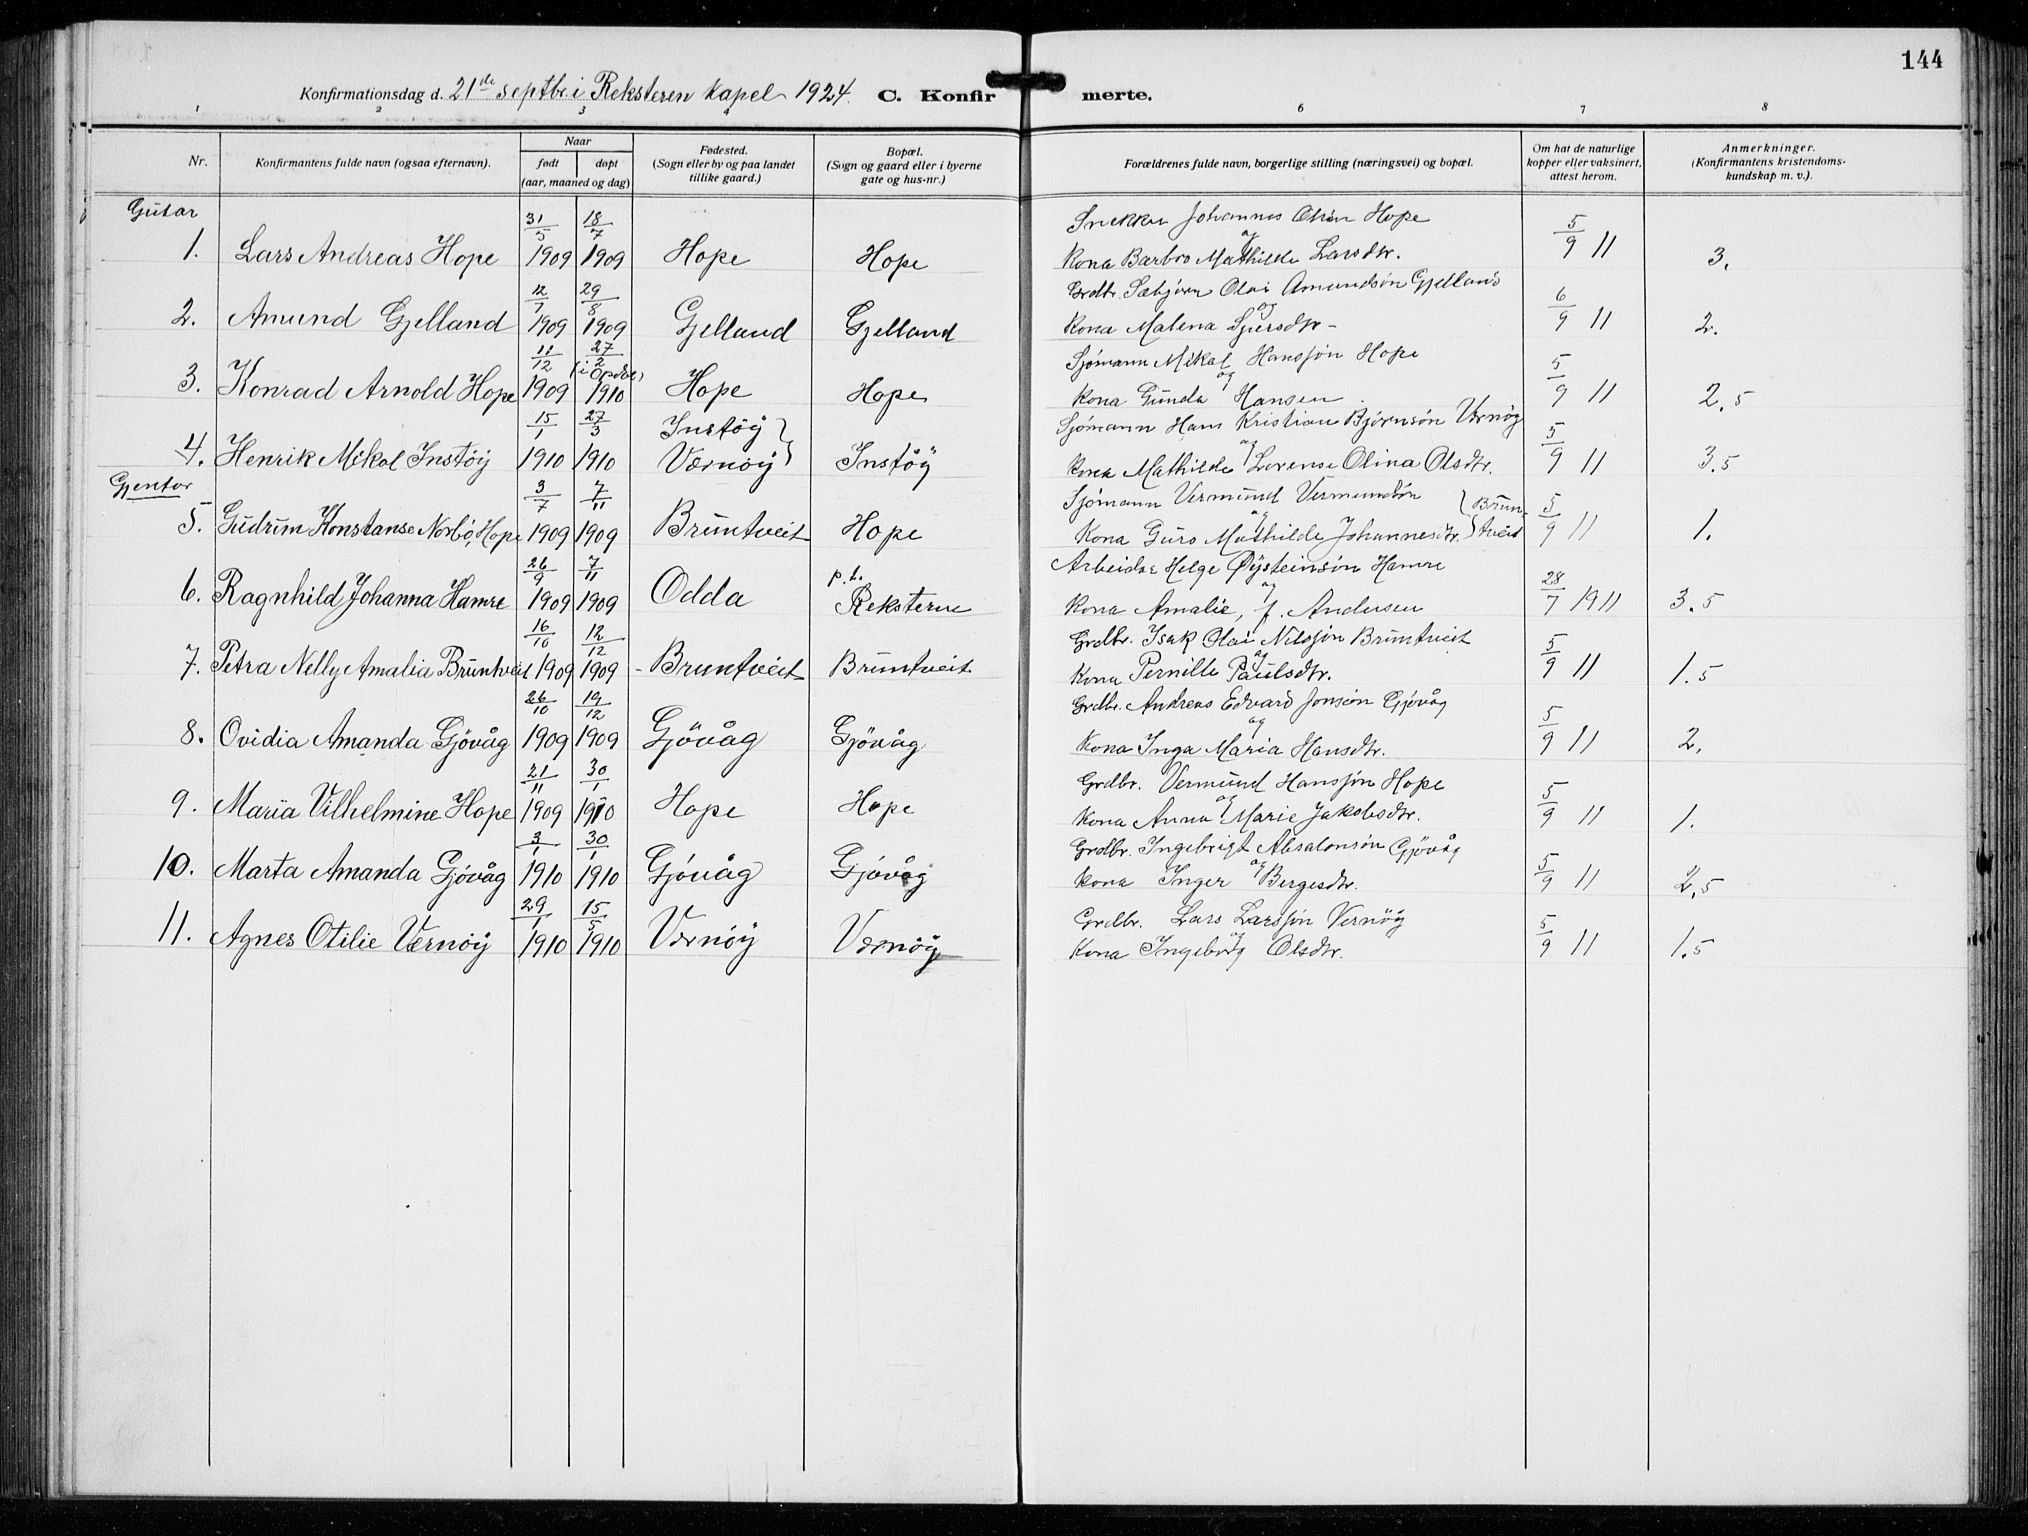 144
Konfirmationsdag d. 21de septbr. i Reksteren kapel 1924. C. Konfir merte.
1 2 3 4 6 7 8
Nr. Konfirmantens fulde navn (ogsaa efternavn). Naar født døpt (aar, maaned og dag) Fødested. (Sogn eller by og paa landet tillike gaard.) Bopæl. (Sogn og gaard eller i byerne gate og hus-nr.) Forældrenes fulde navn, borgerlige stilling (næringsvei) og bopæl. Om hat de naturlige kopper eller vaksinert, attest herom. Anmerkninger. (Konfirmantens kristendomskundskap m. v.).
Gutar
31/5 18/7 Snekker Johannes Olsen Hope
1. Lars Andreas Hope 1909 1909 Hope Hope og Kona Barbro Mathilde Larsdtr. 5/9 11 3.
12/7 29/8 Grdbr. Sæbjørn Olai Amundsøn Gjelland
2. Amund Gjelland 1909 1909 Gjelland Gjelland og Kona Malena Sjursdtr- 6/9 11 2.
11/12 27/2 (i Opdal) Sjømann Mikal Hansson Hope
3. Konrad Arnold Hope 1909 1910 Hope Hope og Kona Gunda Hansen. 5/9 11 2.5
15/1 27/3 Instøy Sjømann Hans Kristian Bjørnsøn Værnøy
4. Henrik Mikal Instøy 1910 1910 Værnøy Instøy og Kona Mathilde Lorense Olina Olsdtr. 5/9 11 3.5
Gjentor
3/7 7/11 Sjømann Vermund Vermundsøn
5. Gudrun Konstanse Norbø, Hope 1909 1909 Bruntveit Hope og Kona Guro Mathilde Johannesdtr. Bruntveit 5/9 11 1.
26/9 7/11 p.t. Arbeidar Helge Øysteinsøn Hamre
6. Ragnhild Johanna Hamre 1909 1909 Odda Reksterne og Kona Amalie, f. Andersen 28/7 1911 3.5
16/10 12/12 Grdbr. Isak Olai Nilsson Bruntveit
7. Petra Nelly Amalia Bruntveit 1909 1909 - Bruntveit Bruntveit og Kona Pernille Paulsdtr. 5/9 11 1.5
26/10 19/12 Grdbr. Andreas Edvard Jonson Gjøvåg
8. Ovidia Amanda Gjövåg 1909 1909 Gjövåg Gjövåg og Kona Inga Maria Hansdtr. 5/9 11 2.
21/11 30/1 Grdbr. Vermund Hansson Hope
9. Maria Vilhelmine Hope 1909 1910 Hope Hope og Kona Anna Marie Jakobsdtr. 5/9 11 1.
3/1 30/1 Grdbr. Ingebrigt Absalonsøn Gjövåg
10. Marta Amanda Gjøvåg 1910 1910 Gjøvåg Gjøvåg og Kona Inger Bergesdtr. 5/9 11 2.5
29/1 15/5 Grdbr. Lars Larsson Vernöy
11. Agnes Otilie Værnøy 1910 1910 Værnøy Værnøy og Kona Ingeborg Olsdtr. 5/9 11 1.5